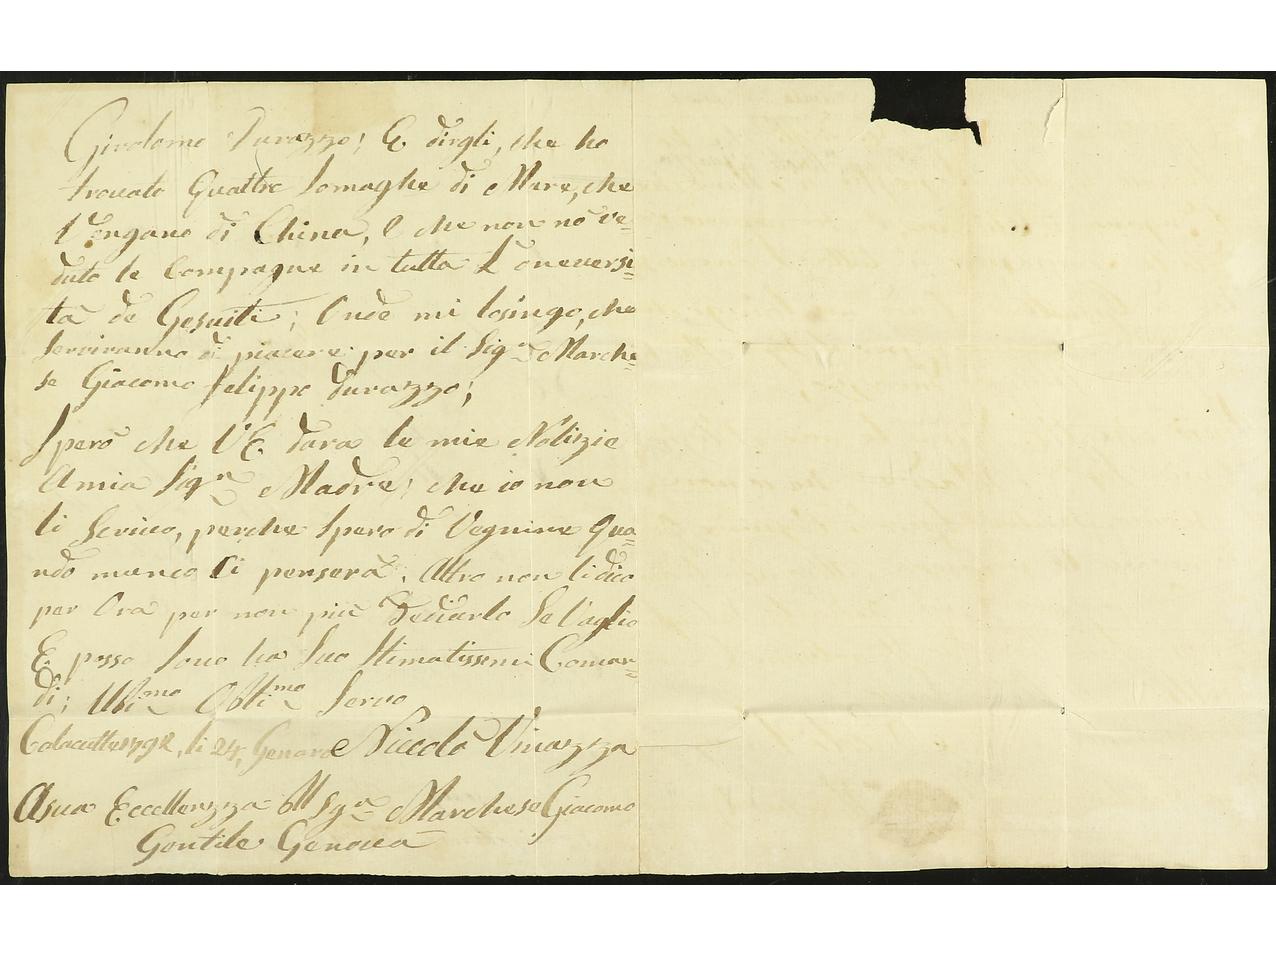 Girolamo Durazzo; E. dirgli, che ho
trovato Quattro Lomaghe di Mare, che
Vengano di China, e che non nò ve=
duto le Compagne in tutta L'oneversi=
tà de Gesuiti; Onde mi losingo, che
Serviranno di piacere per il Sigr Marche=
se Giacomo Felippo Durazzo;
Sperò che V.E. dara le mie Notizie
Amia Sigra Madre; che io non
li Scrivo, perche Spero di Vegnire Qua=
ndo manco Ci penserà. Altro non li dico
per Ora per non più Tediarlo Se Vaglio
E. posso Sono ha Suo Stimatissemi Coman=
di; Ulimo Oblimo Servo
Calacutte 1792, li 24, Genaro Niccolò Vinazza
Asua Eccellenzza Ill Sigr Marchese Giacomo
Gentile Genova